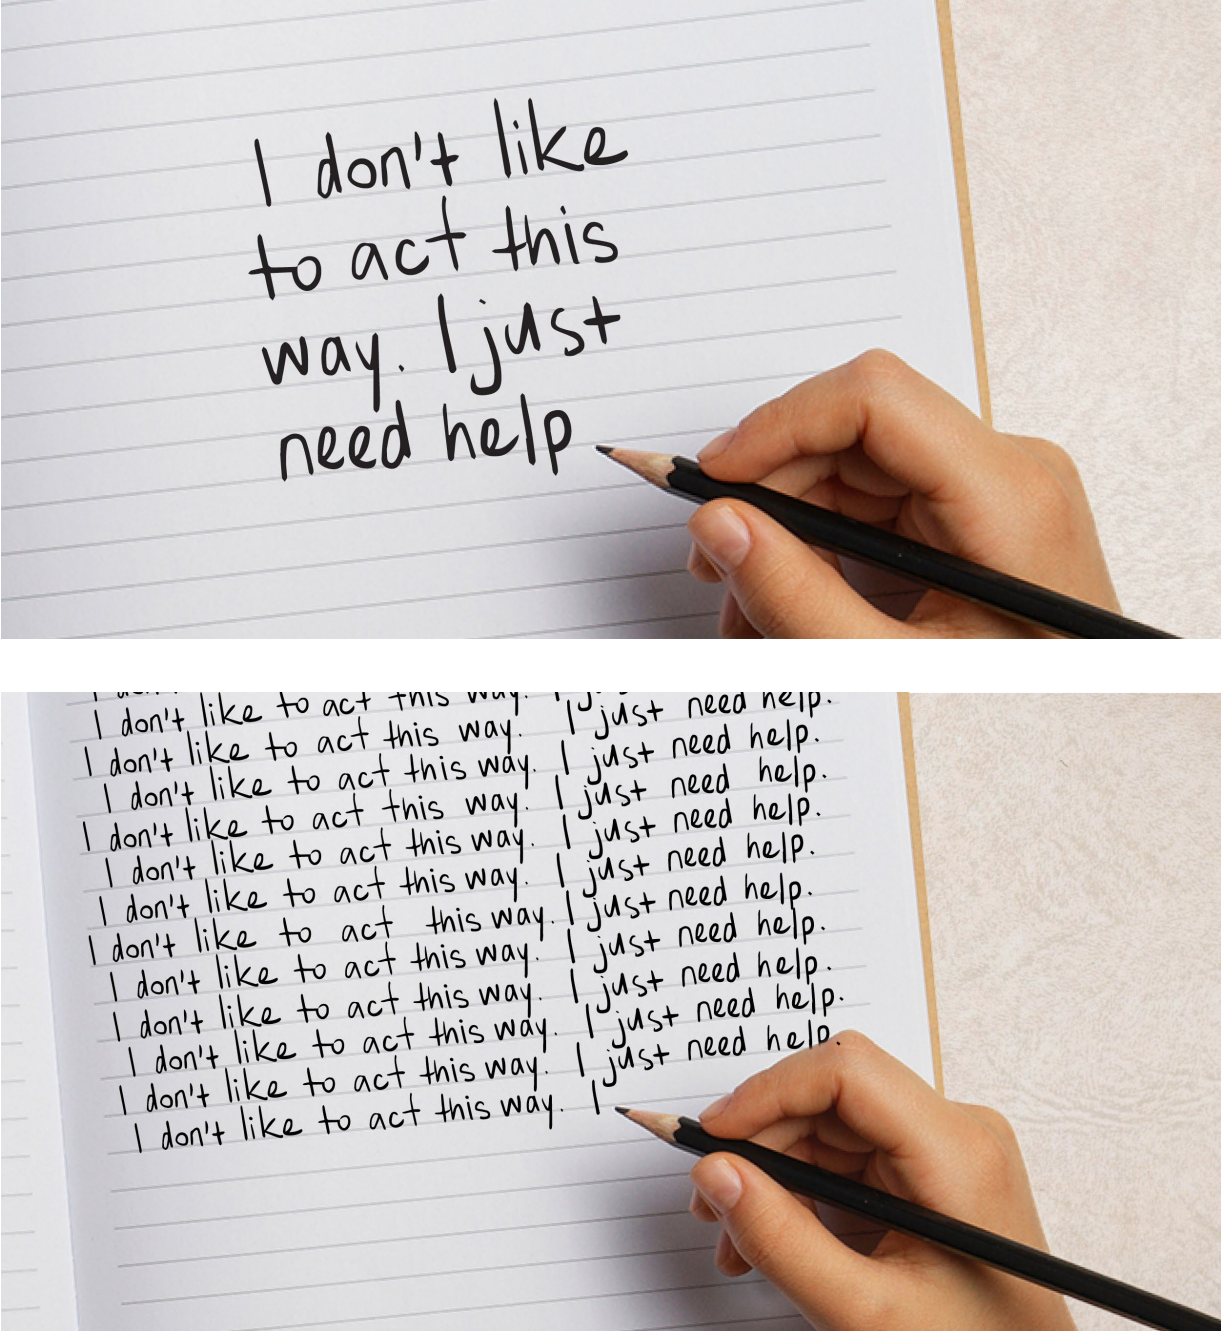 I don't like
to act this
way. I just
need help
I don't like to act this way. I
I don't like to act this way. I just need help.
I don't like to act this way. I just need help.
I don't like to act this way. I just need help.
I don't like to act this way. I just need help.
I don't like to act this way. I just need help.
I don't like to act this way. I just need help.
I don't like to act this way. I just need help.
I don't like to act this way. I just need help.
I don't like to act this way. I just need help.
I don't like to act this way. I just need help.
I don't like to act this way. I